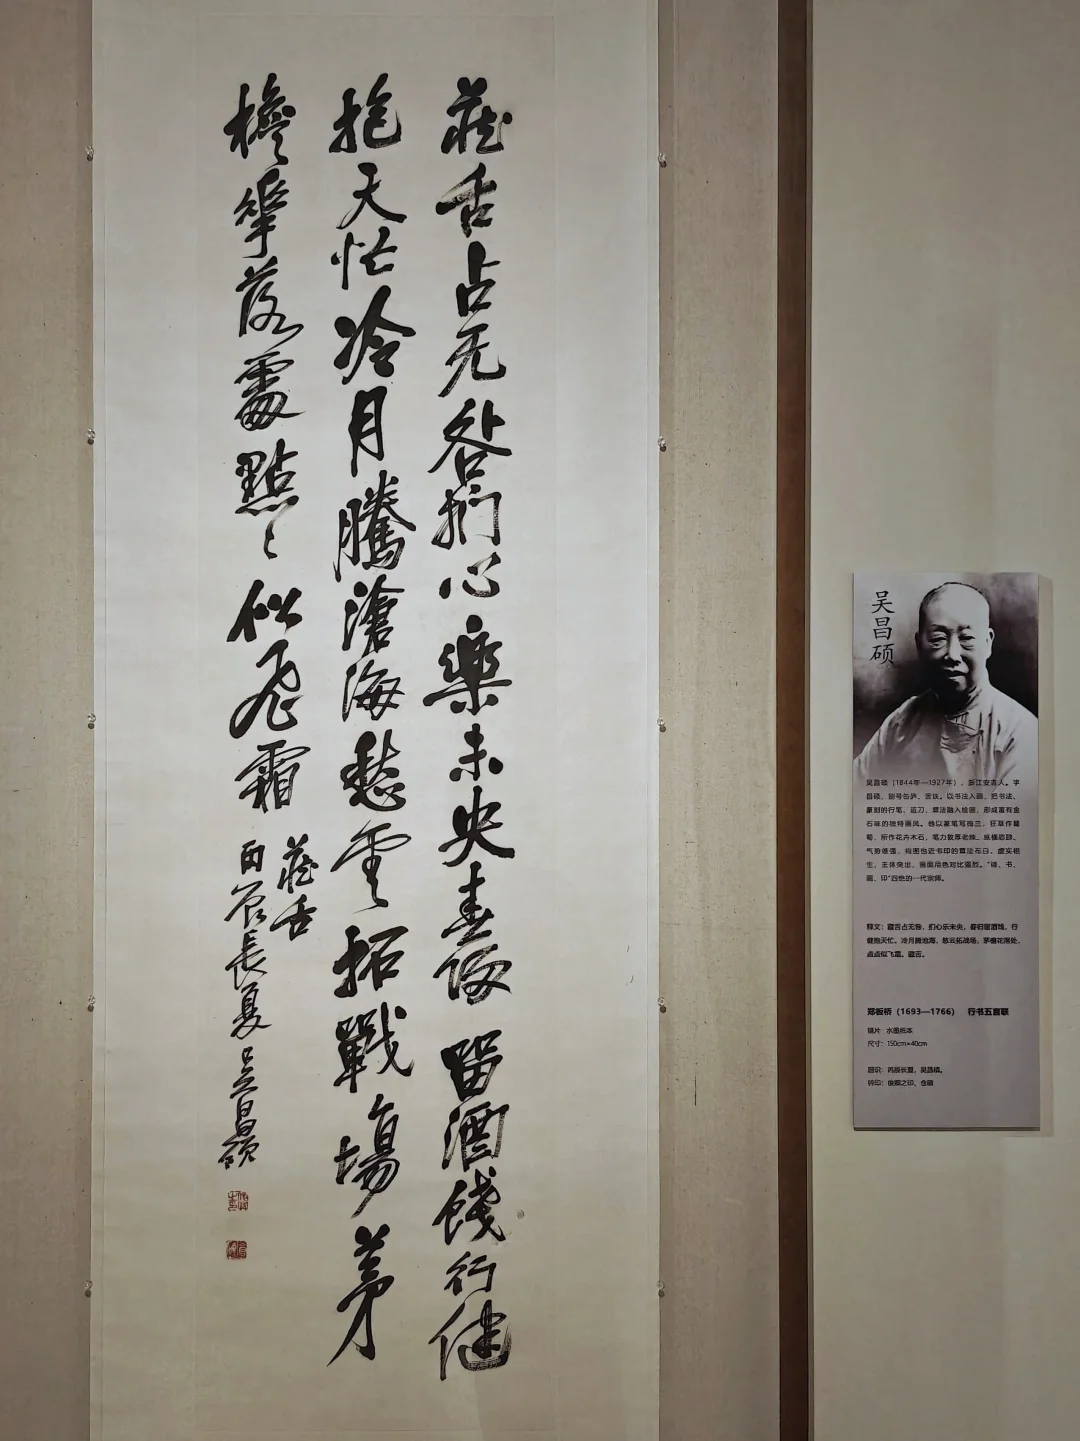 藏舌占无咎捫心樂未央春歸留酒餞行健
抱天忙冷月騰滄海愁雲拓戰場茅
檐華落處點〻似飛霜
藏舌
丙辰長夏吴昌碩
吴昌硕
吴昌硕（1844年—1927年），浙江安吉人。字
昌硕，别号缶庐、苦铁。以书法入画，把书法、
篆刻的行笔、运刀、章法融入绘画，形成富有金
石味的独特画风。他以篆笔写梅兰，狂草作葡
萄。所作花卉木石，笔力敦厚老辣、纵横恣肆、
气势雄强，构图也近书印的章法布白，虚实相
生，主体突出，画面用色对比强烈。“诗、书、
画、印”四绝的一代宗师。
释文：藏舌占无咎，扪心乐未央，春归留酒饯，行
健抱天忙。冷月腾沧海，愁云拓战场，茅檐花落处，
点点似飞霜。藏舌。
郑板桥（1693—1766） 行书五言联
镜片 水墨纸本
尺寸：150cm×40cm
题识：丙辰长夏，吴昌硕。
钤印：俊卿之印、仓硕